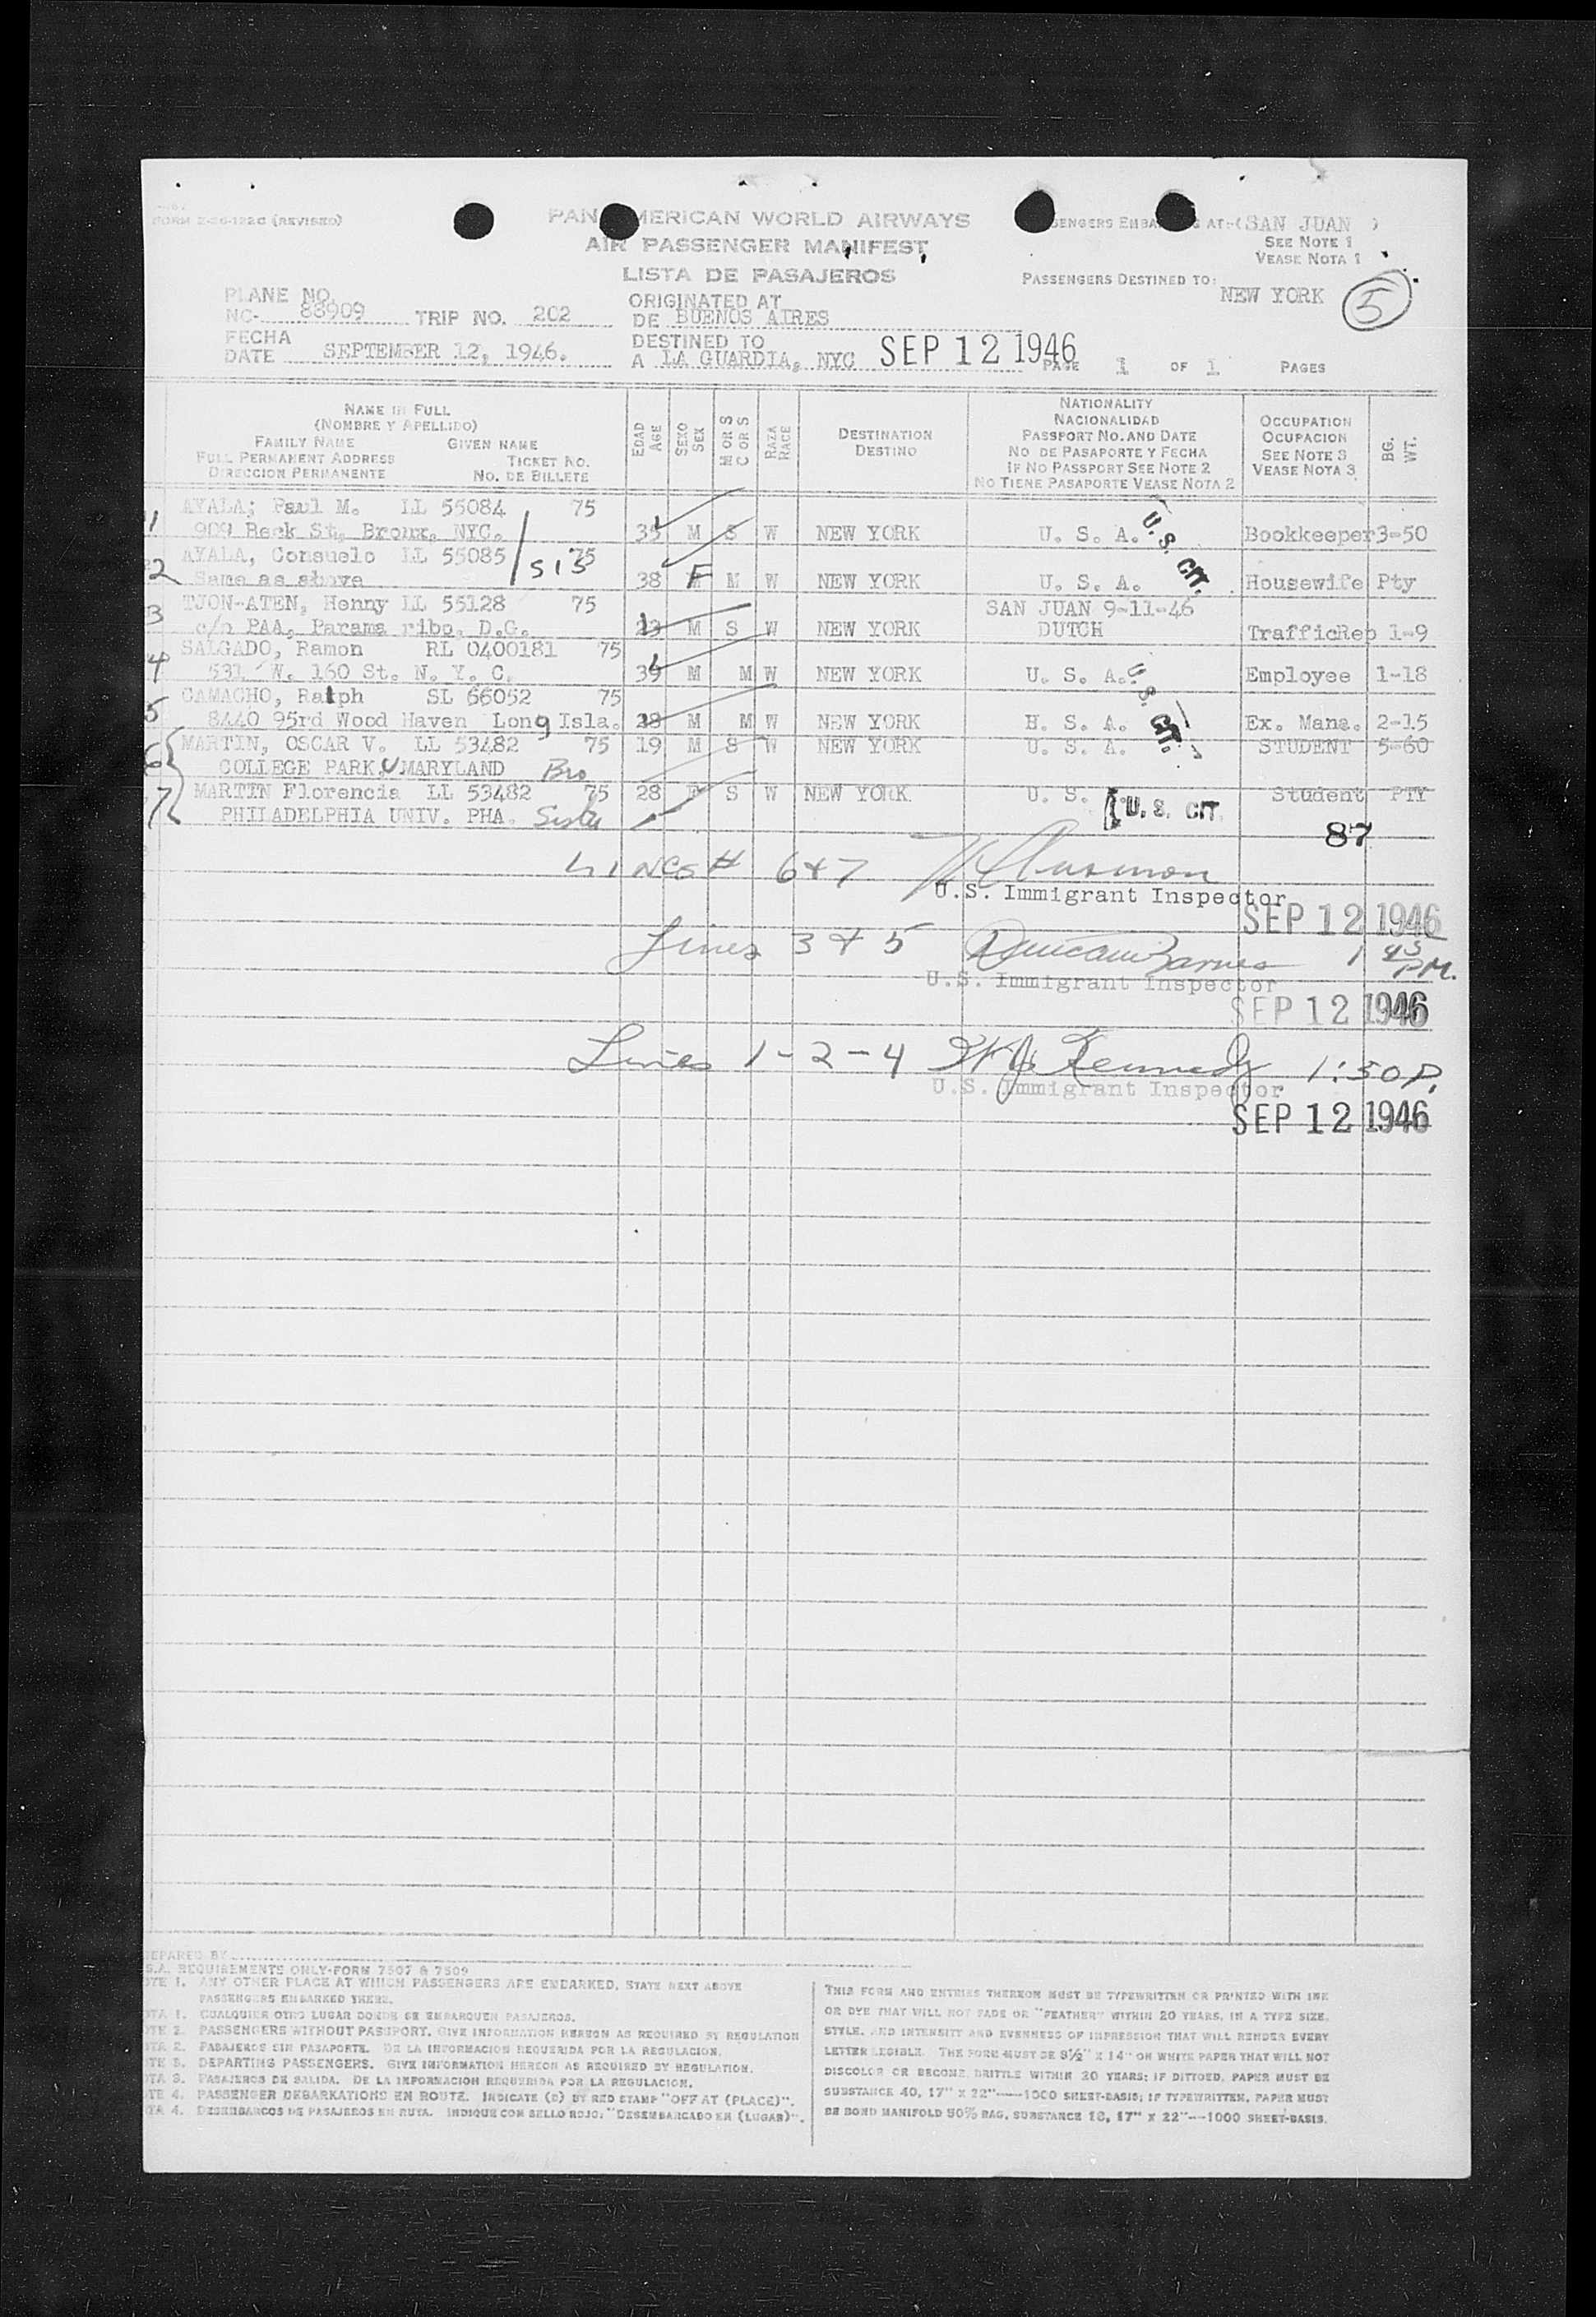 FORM Z-26-122C (REVISED)
PAN AMERICAN WORLD AIRWAYS
AIR PASSENGER MANIFEST
LISTA DE PASAJEROS
AT:-(SAN JUAN )
SEE NOTE 1
VEASE NOTA 1
PASSENGERS DESTINED TO:
NEW YORK
5
PLANE NO.
NO- 88909 TRIP NO. 202
ORIGINATED AT
DE BUENOS AIRES
FECHA
DATE SEPTEMBER 12, 1946.
DESTINED TO
A LA GUARDIA, NYC
SEP 12 1946
PAGE 1 OF 1 PAGES
NAME IN FULL
(NOMBRE Y APELLIDO)
FAMILY NAME GIVEN NAME
FULL PERMANENT ADDRESS TICKET NO.
DIRECCION PERMANENTE NO. DE BILLETE
EDAD AGE
SEXO SEX
M OR S C OR S
RAZA RACE
DESTINATION
DESTINO
NATIONALITY
NACIONALIDAD
PASSPORT NO. AND DATE
NO DE PASAPORTE Y FECHA
IF NO PASSPORT SEE NOTE 2
NO TIENE PASAPORTE VEASE NOTA 2
OCCUPATION
OCUPACION
SEE NOTE 3
VEASE NOTA 3
BG. WT.
AYALA; Paul M. LL 55084 75
1 909 Beck St. Bronx. NYC. 35 M S W NEW YORK U. S. A. U.S. CIT. Bookkeeper 3-50
AYALA, Consuelo LL 55085 75
2 Same as above SIS 38 F M W NEW YORK U. S. A. Housewife Pty
TJON-ATEN, Henny LL 55128 75 SAN JUAN 9-11-46
3 c/o PAA, Parama ribo. D.G. 23 M S W NEW YORK DUTCH TrafficRep 1-9
SALGADO, Ramon RL 0400181 75
4 531 W. 160 St. N. Y. C. 39 M M W NEW YORK U. S. A. U.S. CIT. Employee 1-18
CAMACHO, Ralph SL 66052 75
5 8440 95rd Wood Haven Long Isla. 28 M M W NEW YORK H. S. A. Ex. Mana. 2-15
6 MARTIN, OSCAR V. LL 53482 75 19 M S W NEW YORK U. S. A. STUDENT 5-60
COLLEGE PARK, MARYLAND Bro
7 MARTIN Florencia LL 53482 75 28 F S W NEW YORK U. S. U.S. CIT. Student PTY
PHILADELPHIA UNIV. PHA. Sister
87
Lines # 6+7
U.S. Immigrant Inspector
SEP 12 1946
Lines 3 + 5 Duncan Barnes 1 45 PM.
U.S. Immigrant Inspector
SEP 12 1946
Lines 1-2-4 Kennedy 1:50 P.
U.S. Immigrant Inspector
SEP 12 1946
EPARED BY
S.A. REQUIREMENTS ONLY-FORM 7507 & 7509
OTE 1. ANY OTHER PLACE AT WHICH PASSENGERS ARE EMBARKED, STATE NEXT ABOVE
PASSENGERS EMBARKED THERE.
OTA 1. CUALQUIER OTRO LUGAR DONDE SE EMBARQUEN PASAJEROS.
OTE 2. PASSENGERS WITHOUT PASSPORT. GIVE INFORMATION HEREON AS REQUIRED BY REGULATION
OTA 2. PASAJEROS SIN PASAPORTE. DE LA INFORMACION REQUERIDA POR LA REGULACION.
OTE 3. DEPARTING PASSENGERS. GIVE INFORMATION HEREON AS REQUIRED BY REGULATION.
OTA 3. PASAJEROS DE SALIDA. DE LA INFORMACION REQUERIDA POR LA REGULACION.
OTE 4. PASSENGER DEBARKATIONS EN ROUTE. INDICATE (D) BY RED STAMP "OFF AT (PLACE)".
OTA 4. DESEMBARCOS DE PASAJEROS EN RUTA. INDIQUE CON SELLO ROJO: "DESEMBARCADO EN (LUGAR)".
THIS FORM AND ENTRIES THEREON MUST BE TYPEWRITTEN OR PRINTED WITH INK
OR DYE THAT WILL NOT FADE OR "FEATHER" WITHIN 20 YEARS, IN A TYPE SIZE,
STYLE, AND INTENSITY AND EVENNESS OF IMPRESSION THAT WILL RENDER EVERY
LETTER LEGIBLE. THE FORM MUST BE 8½" X 14" ON WHITE PAPER THAT WILL NOT
DISCOLOR OR BECOME BRITTLE WITHIN 20 YEARS; IF DITTOED, PAPER MUST BE
SUBSTANCE 40, 17" X 22"----1000 SHEET-BASIS; IF TYPEWRITTEN, PAPER MUST
BE BOND MANIFOLD 50% RAG, SUBSTANCE 16, 17" X 22"---1000 SHEET-BASIS.